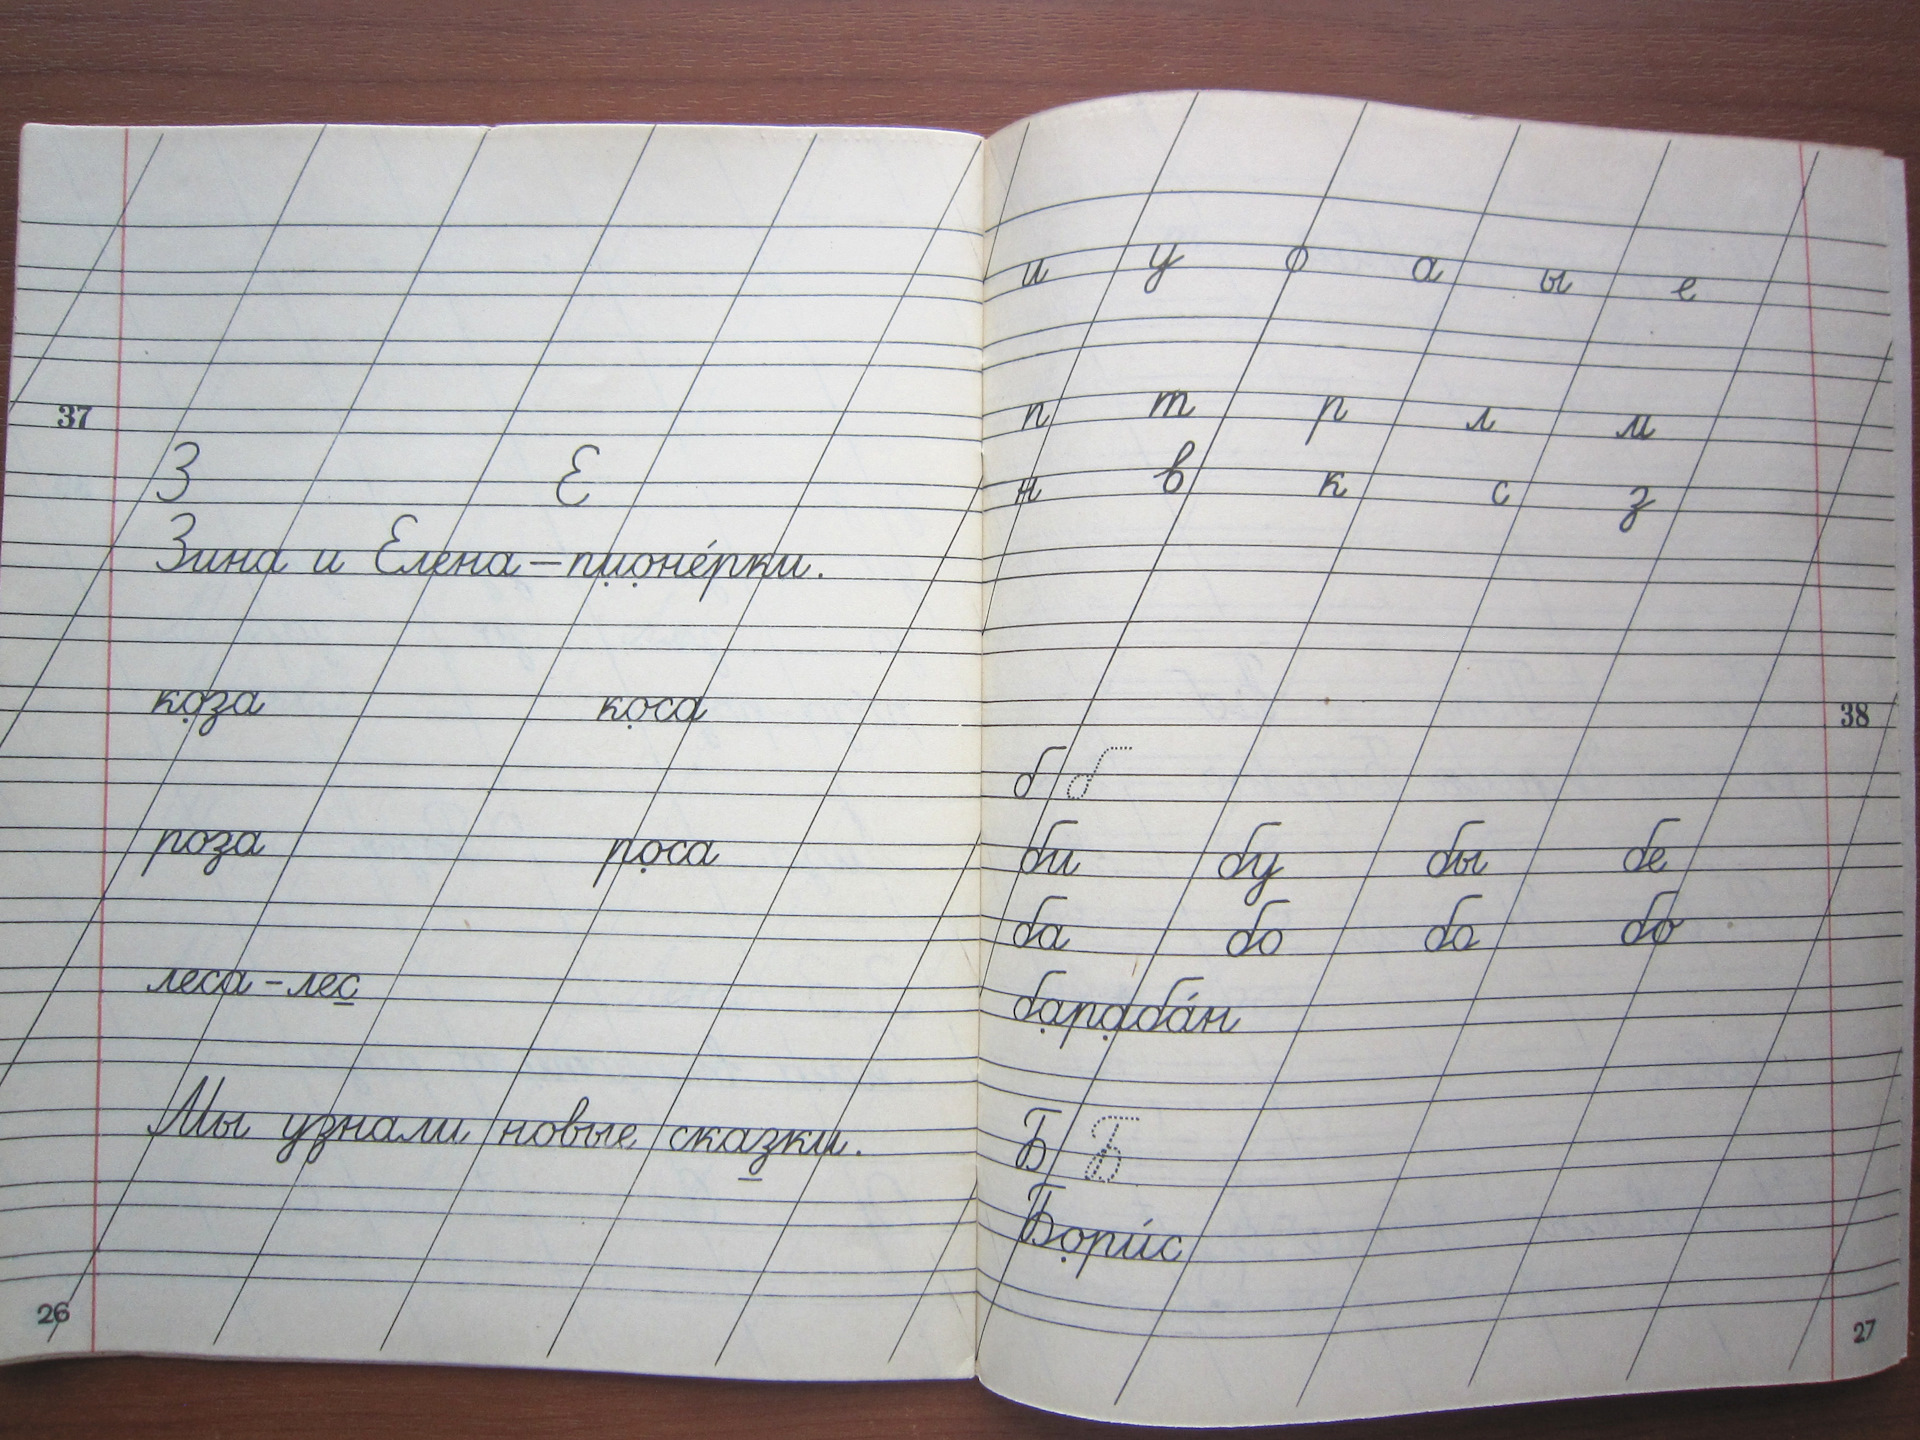 37
З Е
Зина и Елена – пионе́рки.
коза коса
роза роса
леса – лес
Мы узнали новые сказки.
26
и у о а ы е
п т р л м
н в к с з
38
б б
би бу бы бе
ба бо ба бо
бараба́н
Б Б
Бори́с
27